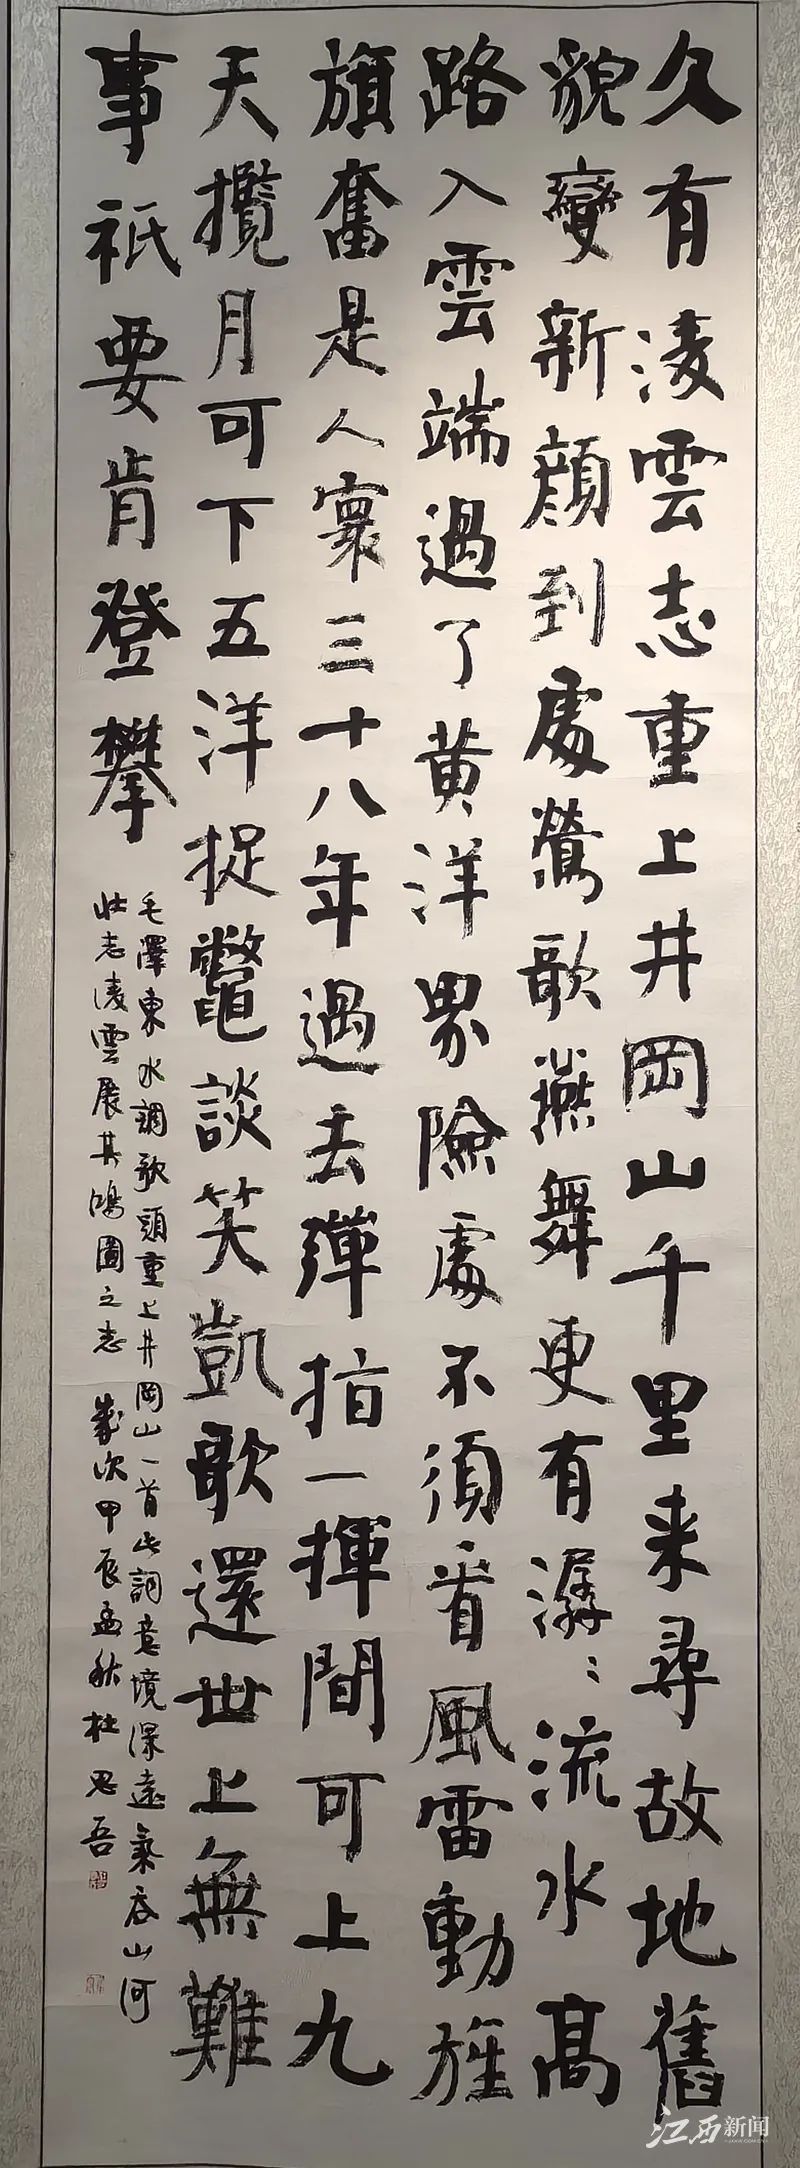 久有凌雲志重上井岡山千里来尋故地舊
貌變新顔到處鶯歌燕舞更有潺〻流水髙
路入雲端過了黄洋界險處不須看風雷動旌
旗奮是人寰三十八年過去彈指一揮間可上九
天攬月可下五洋捉鼈談笑凱歌還世上無難
事祇要肯登攀
毛澤東水調歌頭重上井岡山一首此詞意境深遠氣吞山河
壯志凌雲展其鴻圖之志 歲次甲辰孟秋杜思吾
江西新闻